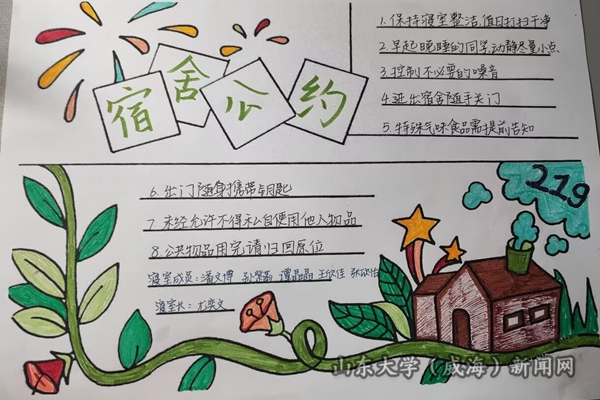 宿舍公约
1.保持寝室整洁,值日打扫干净
2.早起晚睡的同学,动静尽量小点
3.控制不必要的噪音
4.进出宿舍随手关门
5.特殊气味食品需提前告知
219
6.出门随身携带钥匙
7.未经允许不得私自使用他人物品
8.公共物品用完请归回原位
寝室成员:潘文博 谭晶晶 王欣佳
寝室长:
山东大学(威海)新闻网